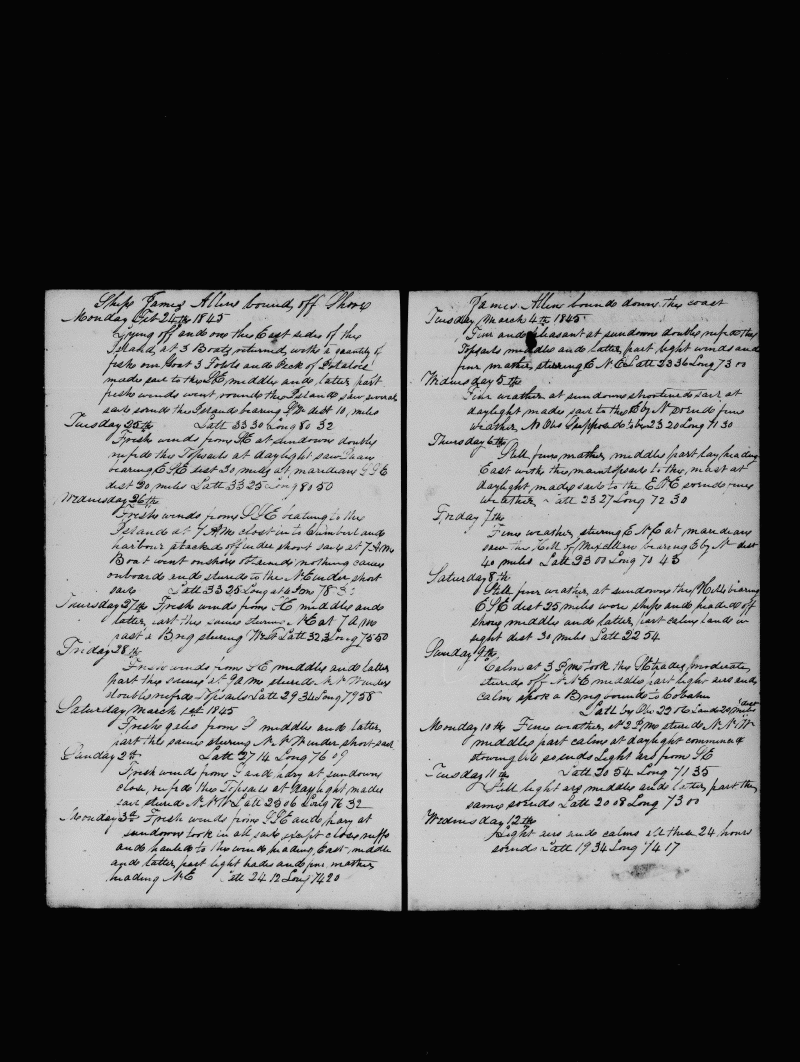 Ships James Allen bound off Shore
Monday Feb 24th 1845
Lying off and on the East side of the
Island, at 3 Boats returned with a quantity of
fish one Goat 3 Fowls and Peck of Potatoes
made sail to the SE middle and latter part
fresh winds went round the Island saw several
sails sounds the Islands bearing SW dist 10 miles
Tuesday 25th Latt 33 30 Long 80 32
Fresh winds from SE at sundown double
reefed the Topsails at daylight saw
bearing ESE dist 30 miles at meridian SSE
dist 20 miles Latt 33 25 Long 80 50
Wednesday 26th
Fresh winds from SSE beating to the
Island at 7 AM close in to Cumberland
harbour tacked off under short sail at 7 AM
Boat went onshore found nothing came
onboard and steered to the NE under short
sail Latt 33 25 Long at 4 78
Thursday 27th Fresh winds from SE middle and
latter part the same stering NE at 7 AM
past a Brig stering West Latt 32 Long 75 50
Friday 28th
Fresh winds from SE middle and latter
part the same at 9 am stered N N W under
double reefed Topsails Latt 29 34 Long 79 58
Saturday March 1st 1845
Fresh gales from S middle and latter
part the same stering N N W under short sail
Sunday 2d Latt 27 14 Long 76 09
Fresh winds from S and hazy at sundown
close reefed the Topsails at daylight made
sail stered N N W Latt 25 06 Long 76 32
Monday 3d Fresh winds from SSE and hazy at
sundown took in all sail except close reefs
and hauled to the wind heading East middle
and latter part light and fine wether
heading NE Latt 24 12 Long 74 20
James Allen bound down the coast
Tuesday March 4th 1845
Fair and pleasant at sundown double reefed the
Topsails middle and latter part light winds and
fine wether stering E N E Latt 23 36 Long 73 00
Wednesday 5th
Fair weather at sundown shortened sail at
daylight made sail to the E by N sounds fine
weather No Obs Supposed to be 23 20 Long 71 30
Thursday 6th
Still fine wether, middle part lay heading
East with the mainstpsail to the mast at
daylight made sail to the ENE sounds fine
weather Latt 23 27 Long 72 30
Friday 7th
Fine weather, stering E N E at meridian
saw the Hill of Mexillon bearing E by N dist
40 miles Latt 23 00 Long 70 45
Saturday 8th
Still fine weather, at sundown the Hill bearing
ESE dist 25 miles wore ship and headed off
shore middle and latter part calm land in
sight dist 30 miles Latt 22 54
Sunday 9th
Calm at 3 PM took the SE trades, moderate
stered off N N E middle part light airs and
calm spoke a Brig bound to Cobaha
Latt by Obs 22 06 Land 20 miles dist
Monday 10th Fine weather, at 2 PM stered N N W
middle part calm at daylight commenced
stowing bls sounds Light airs from SE
Tuesday 11th Latt 20 54 Long 71 35
Still light airs middle and latter part the
same sounds Latt 20 08 Long 73 00
Wednesday 12th
Light airs and calms all these 24 hours
sounds Latt 19 34 Long 74 17